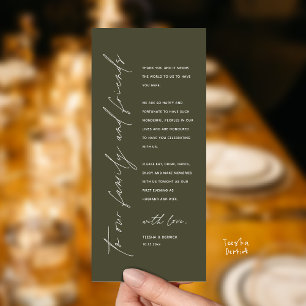 to our family and friends
THANK YOU, AND IT MEANS
THE WORLD TO US TO HAVE
YOU HERE.
WE ARE SO HAPPY AND
FORTUNATE TO HAVE SUCH
WONDERFUL PEOPLES IN OUR
LIVES AND ARE HONOURED
TO HAVE YOU CELEBRATING
WITH US.
PLEASE EAT, DRINK, DANCE,
ENJOY AND MAKE MEMORIES
WITH US TONIGHT AS OUR
FIRST EVENING AS
HUSBAND AND WIFE.
with love,
TEESHA & DERRICK